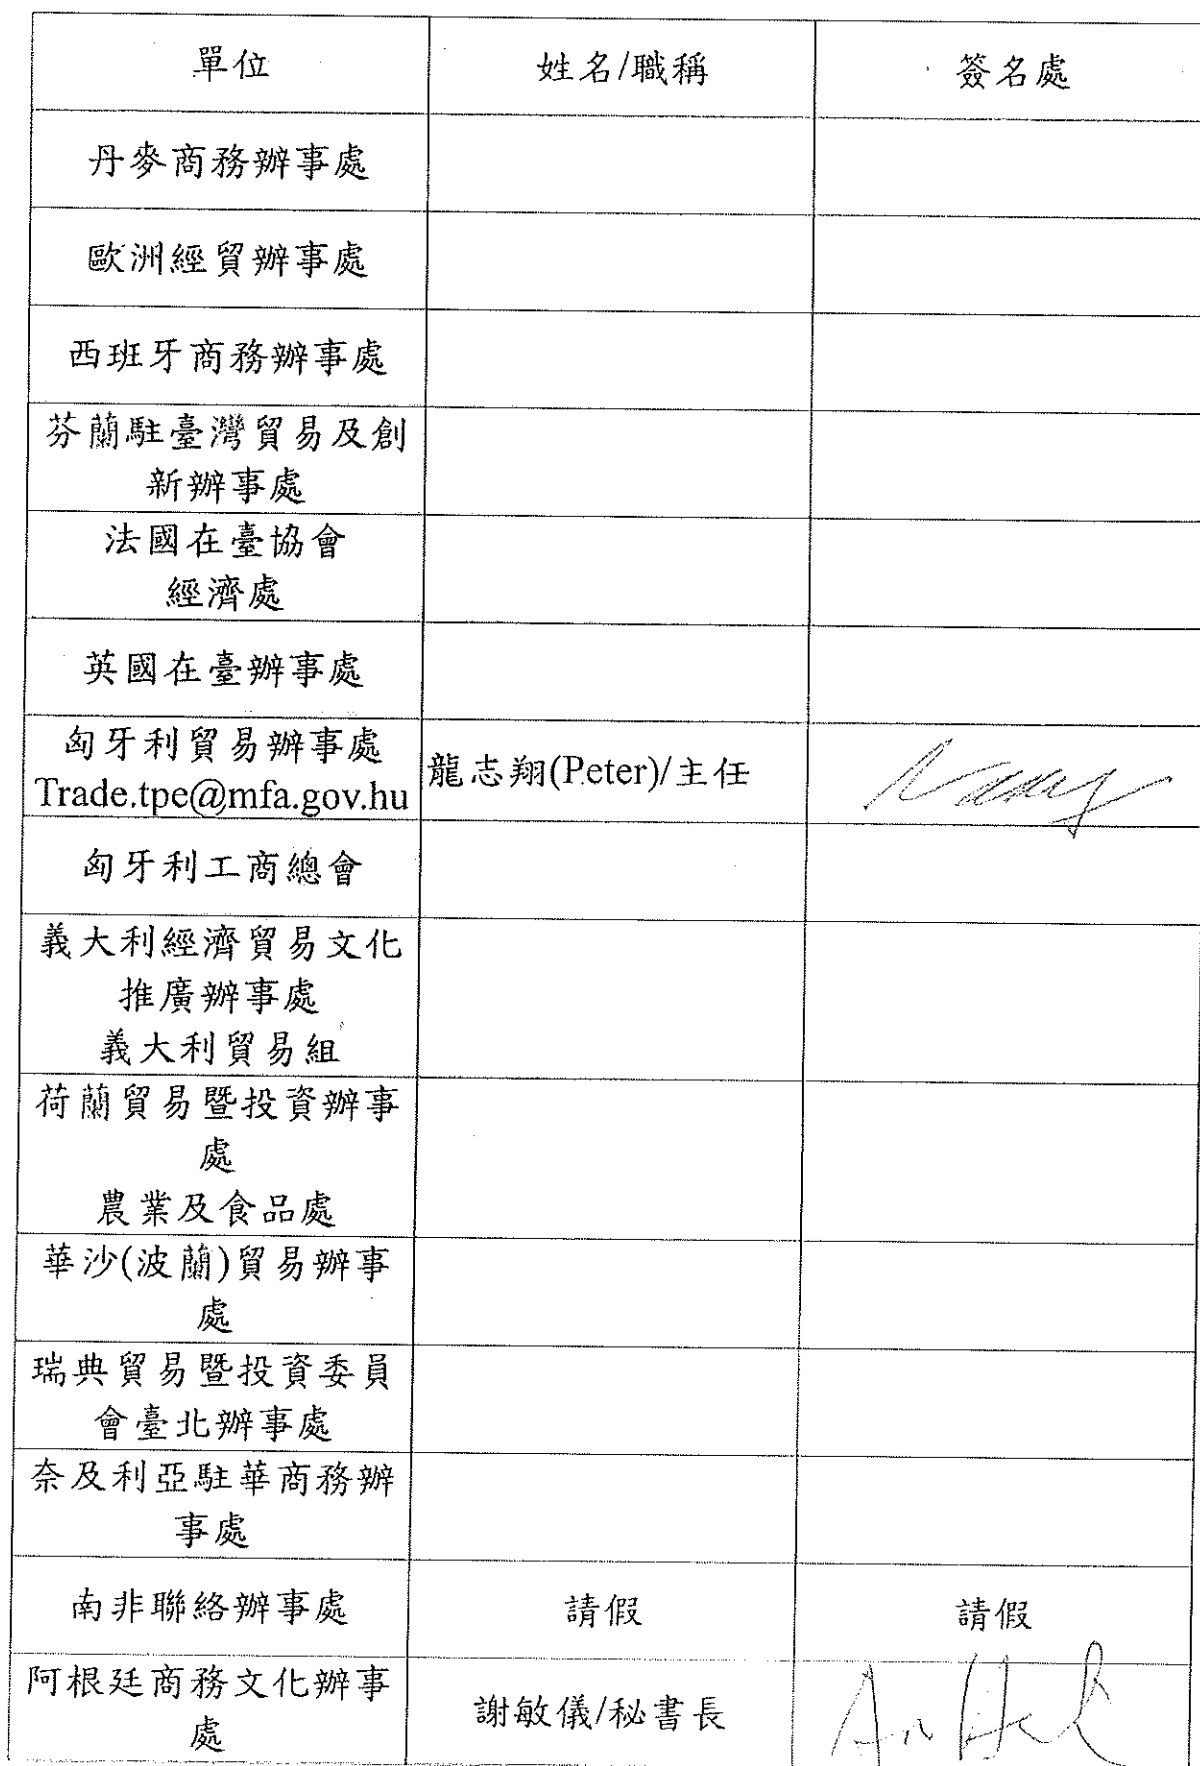 單位 姓名/職稱 簽名處
丹麥商務辦事處
歐洲經貿辦事處
西班牙商務辦事處
芬蘭駐臺灣貿易及創
新辦事處
法國在臺協會
經濟處
英國在臺辦事處
匈牙利貿易辦事處
Trade.tpe@mfa.gov.hu
龍志翔(Peter)/主任
匈牙利工商總會
義大利經濟貿易文化
推廣辦事處
義大利貿易組
荷蘭貿易暨投資辦事
處
農業及食品處
華沙(波蘭)貿易辦事
處
瑞典貿易暨投資委員
會臺北辦事處
奈及利亞駐華商務辦
事處
南非聯絡辦事處 請假 請假
阿根廷商務文化辦事
處
謝敏儀/秘書長